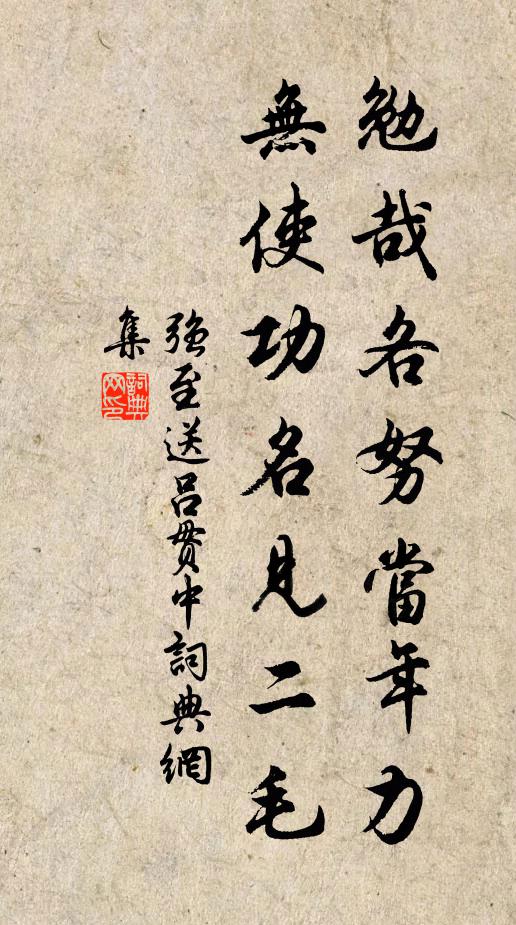 勉哉各努當年力
無使功名見二毛
強至送呂貫中詞典網
集
詞典網印